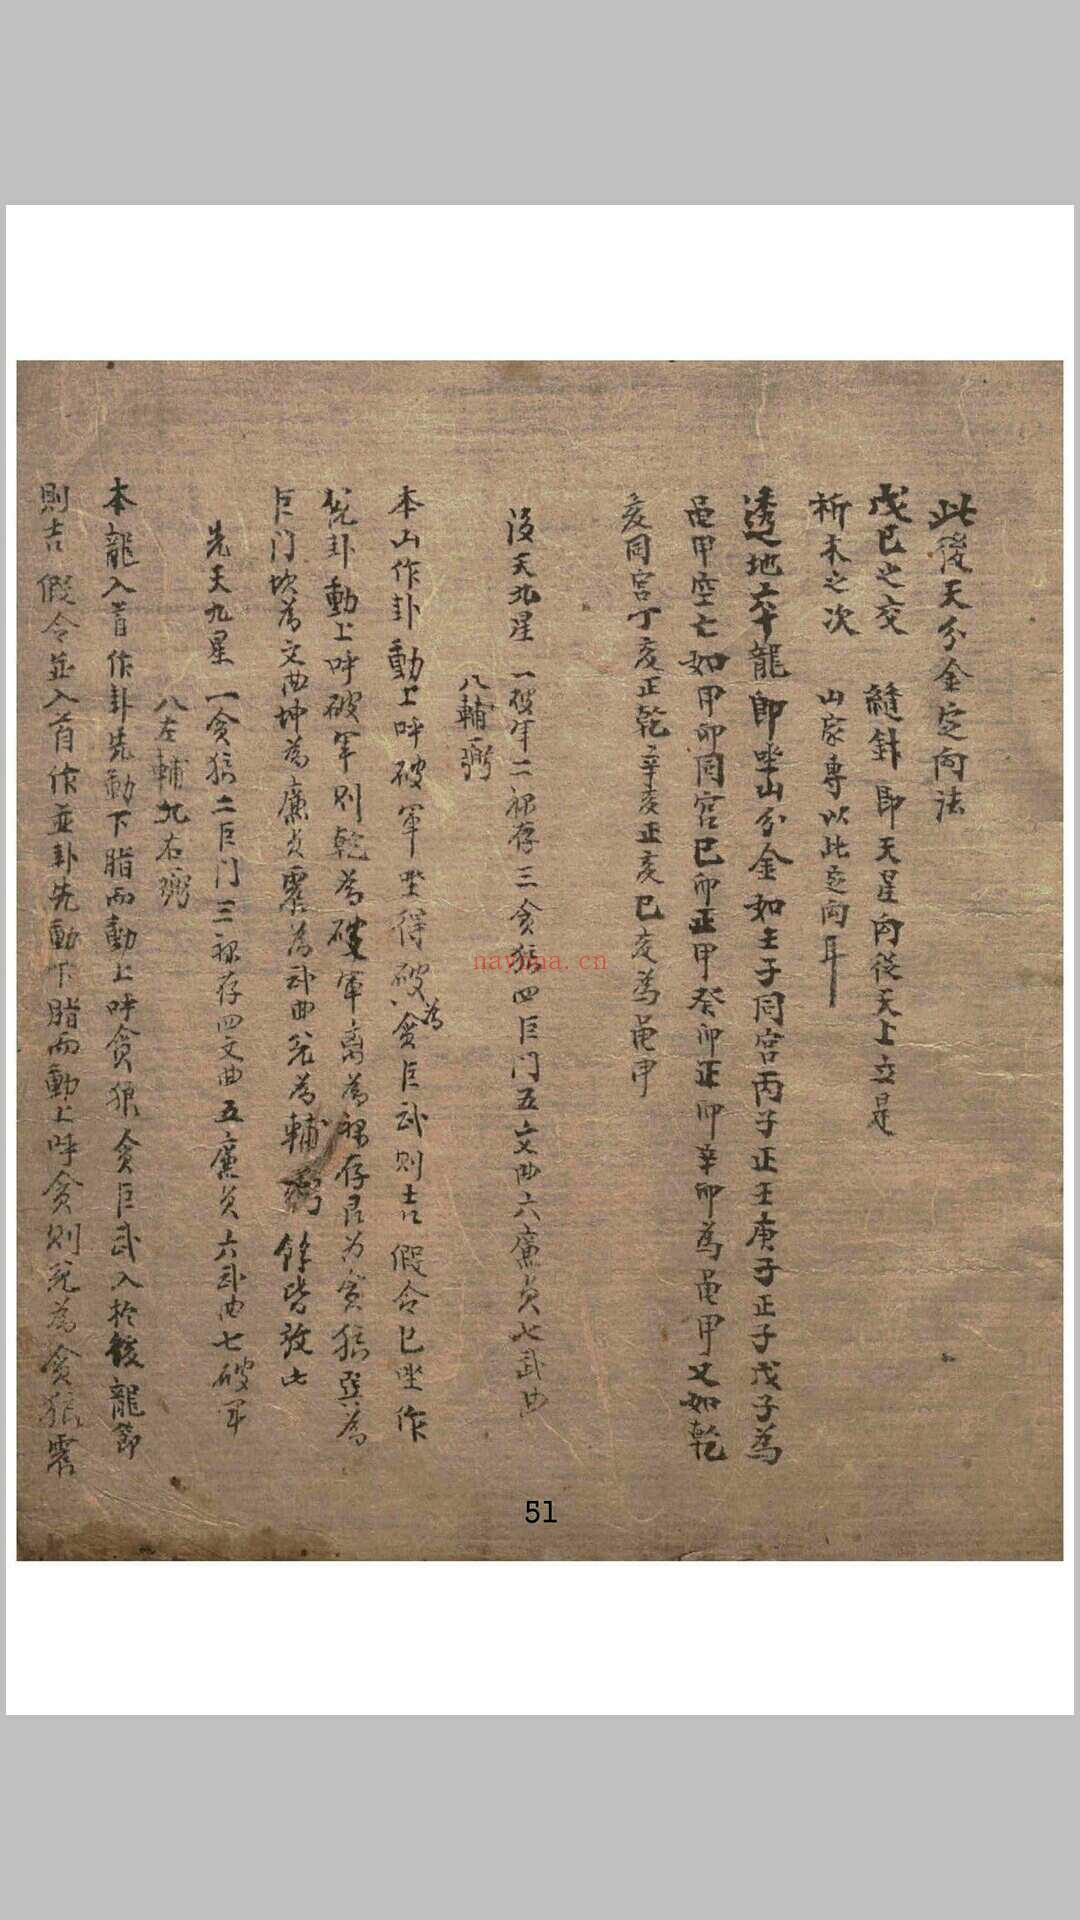 此後天分金定向法
戊己之交 縫針即天星向從天上立是
析木之次 山家專以此定向耳
透地六十龍即坐山分金如壬子同宮丙子正壬庚子正子戊子為
黽甲空亡如甲卯同宮己卯正甲癸卯正卯辛卯為黽甲又如乾
亥同宮丁亥正乾辛亥正亥己亥為黽甲
後天九星 一破軍二祿存三貪狼四巨门五文曲六廉貞七武曲
八輔弼
本山作卦動上呼破軍坐得破為貪巨武則吉假令巳坐作
兌卦動上呼破军則乾為破軍离為祿存艮为貪狼巽為
巨门坎為文曲坤為廉貞震為武曲兌為輔弼餘皆效此
先天九星 一貪狼二巨门三祿存四文曲五廉貞六武曲七破军
八左輔九右弼
本龍入首作卦先動下脂而動上呼貪狼貪巨武入於後龍節
則吉假令並入首作並卦先動下脂而動上呼貪則兌為貪狼震
nayona.cn
51